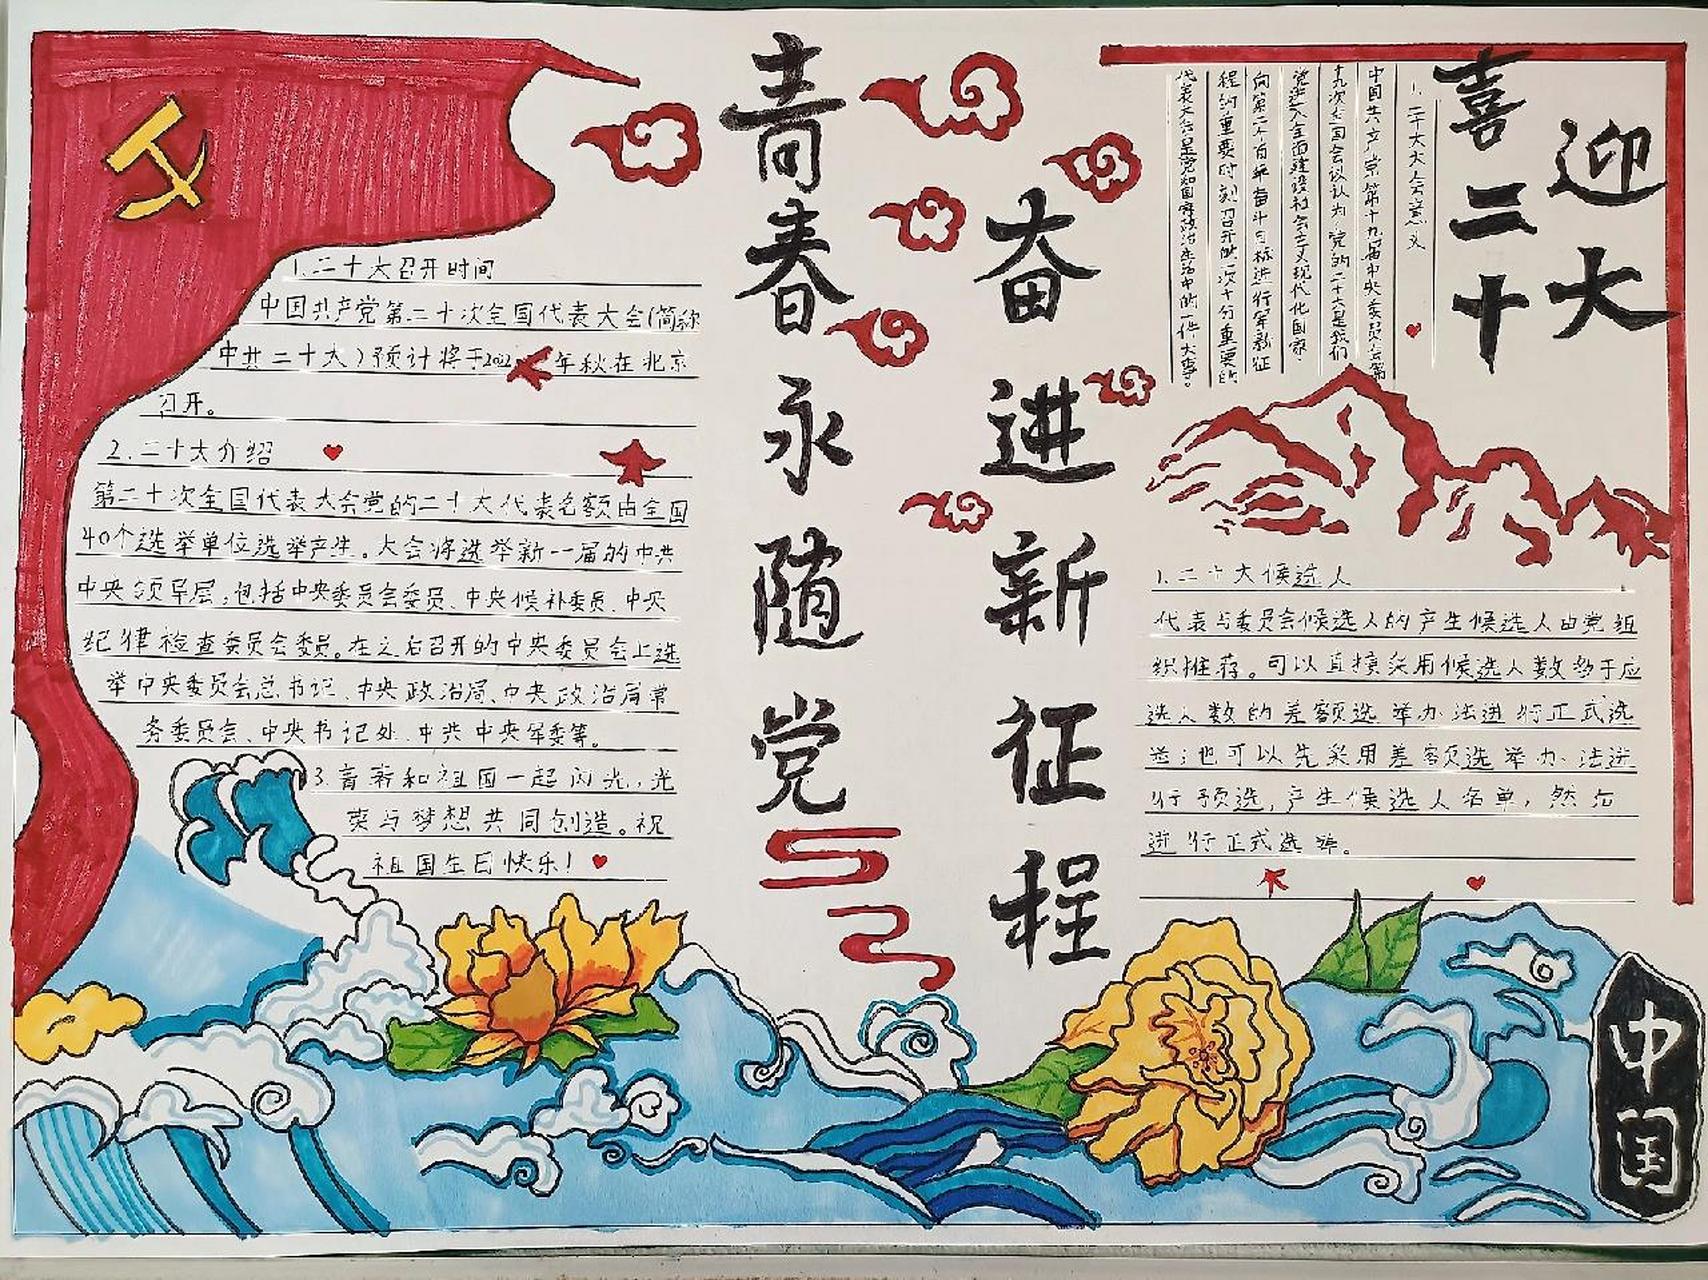 喜迎
二十大
青春永随党
奋进新征程
1.二十大召开时间
中国共产党第二十次全国代表大会(简称
中共二十大)预计将于2022年秋在北京
召开。
2.二十大介绍
第二十次全国代表大会党的二十大代表名额由全国
40个选举单位选举产生。大会将选举新一届的中共
中央领导层,包括中央委员会委员、中央候补委员、中央
纪律检查委员会委员。在之后召开的中央委员会上选
举中央委员会总书记、中央政治局、中央政治局常
务委员会、中央书记处、中共中央军委等。
3.青春和祖国一起闪光,光
荣与梦想共同创造。祝
祖国生日快乐!
1.二十大大会意义
中国共产党第十九届中央委员会第
十九次全国会议认为党的二十大是我们
党进入全面建设社会主义现代化国家
向第二个百年奋斗目标进行军新征
程的重要时刻召开的一次十分重要的
代表大会是党和国家政治生活中的一件大事。
1.二十大候选人
代表与委员会候选人的产生候选人由党组
织推荐。可以直接采用候选人数多于应
选人数的差额选举办法进行正式选
举;也可以先采用差额选举办法进
行预选,产生候选人名单,然后
进行正式选举。
中国